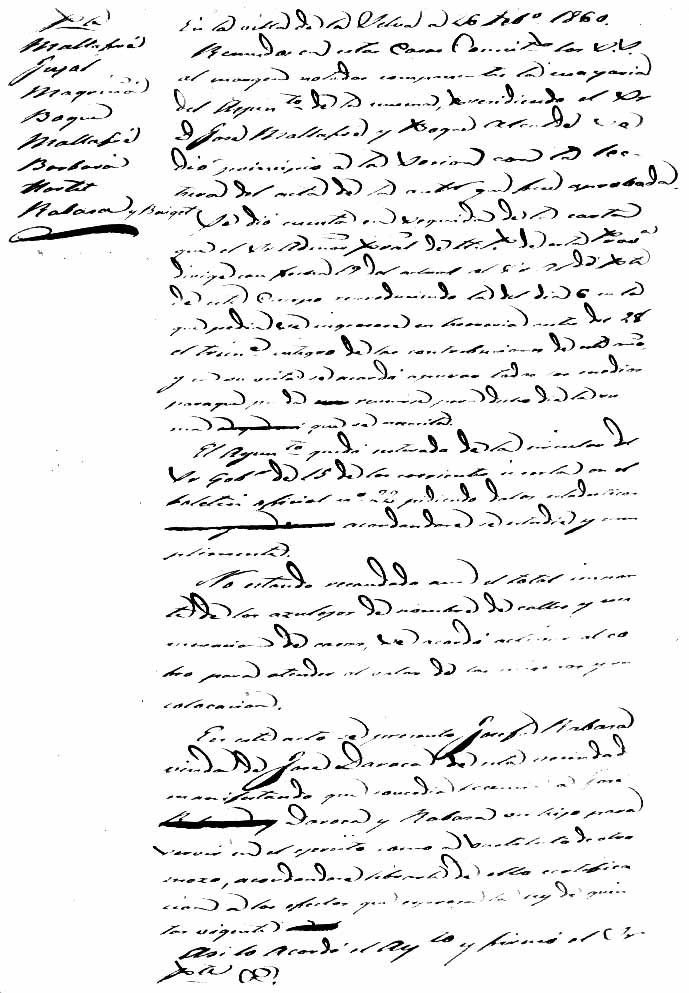 Pte
Mallafré
Jujal
Magriñá
Boqué
Mallafré
Barberá
Martí
Rabasa y Baiget
En la villa de la Selva a 26 Febo 1860.
Reunidos en estas Casas Consistes los S.S.
al margen notados componentes la mayoria
del Ayuntto de la misma, presidiendo el Sr
D José Mallafré y Boqué Alcalde se
dió principio a la sesion con la lec-
tura del acta de la antr que fue aprobada.
Se dió cuenta en seguida de la carta
que el Sr Admor Pral de H. P. de esta Prova
dirige con fecha 19 del actual al Sr Alde Pte
de este Cuerpo reproduciendo la del dia 6 en la
que pedia se ingresara en tesoreria antes del 28
el trime integro de las contribuciones de este año
y en su vista se acordó apurar todos los medios
para que pueda reunirse para dicho dia la su-
ma que se necesita.
El Ayuntto quedó enterado de la circular del
Sr Gobor de 15 de los corrientes inserta en el
boletin oficial no 22 pidiendo datos estadisticos
acordandose se estudie y cum-
plimente.
No estando recaudado aun el total impor-
te de los azulejos de nombre de calles y nu-
meracion de casas, se acordó activar el co-
bro para atender al valor de los mismos y su
colocacion.
En este acto se presentó Josefa Rabasa
viuda de José Daroca de esta vecindad
manifestando que concedia licencia a José
Daroca y Rabasa su hijo para
servir en el ejercito como a substituto de otro
mozo, acordandose librarle de ello certifica-
cion a los efectos que espresa la ley de quin-
tas vigente
Asi lo acordó el Ayto y firmó el Sr
Pte